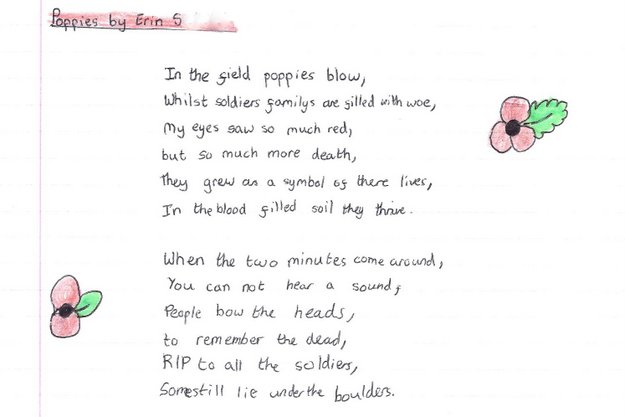 Poppies by Erin S
In the field poppies blow,
Whilst soldiers familys are filled with woe,
My eyes saw so much red,
but so much more death,
They grew as a symbol of there lives,
In the blood filled soil they thrive.
When the two minutes come around,
You can not hear a sound,
People bow the heads,
to remember the dead,
RIP to all the soldiers,
Some still lie under the boulders.